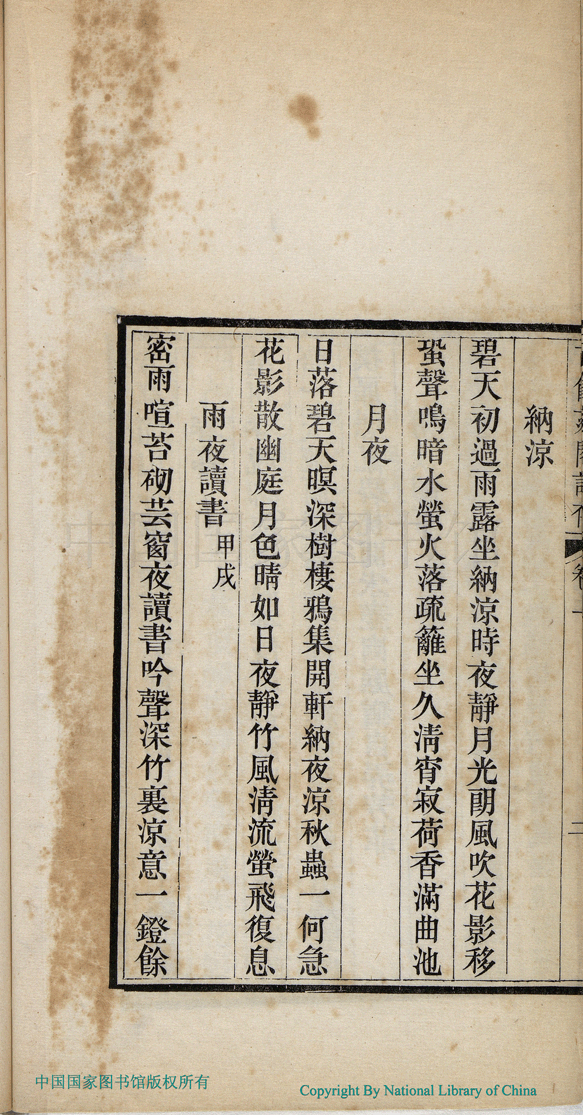 納涼
碧天初過雨露坐納涼時夜靜月光朗風吹花影移
蛩聲鳴暗水螢火落疏籬坐久清宵寂荷香滿曲池
月夜
日落碧天暝深樹棲鴉集開軒納夜涼秋蟲一何急
花影散幽庭月色晴如日夜靜竹風清流螢飛復息
雨夜讀書 甲戌
密雨喧苔砌芸窗夜讀書吟聲深竹裏涼意一鐙餘
中国国家图书馆版权所有
Copyright By National Library of China